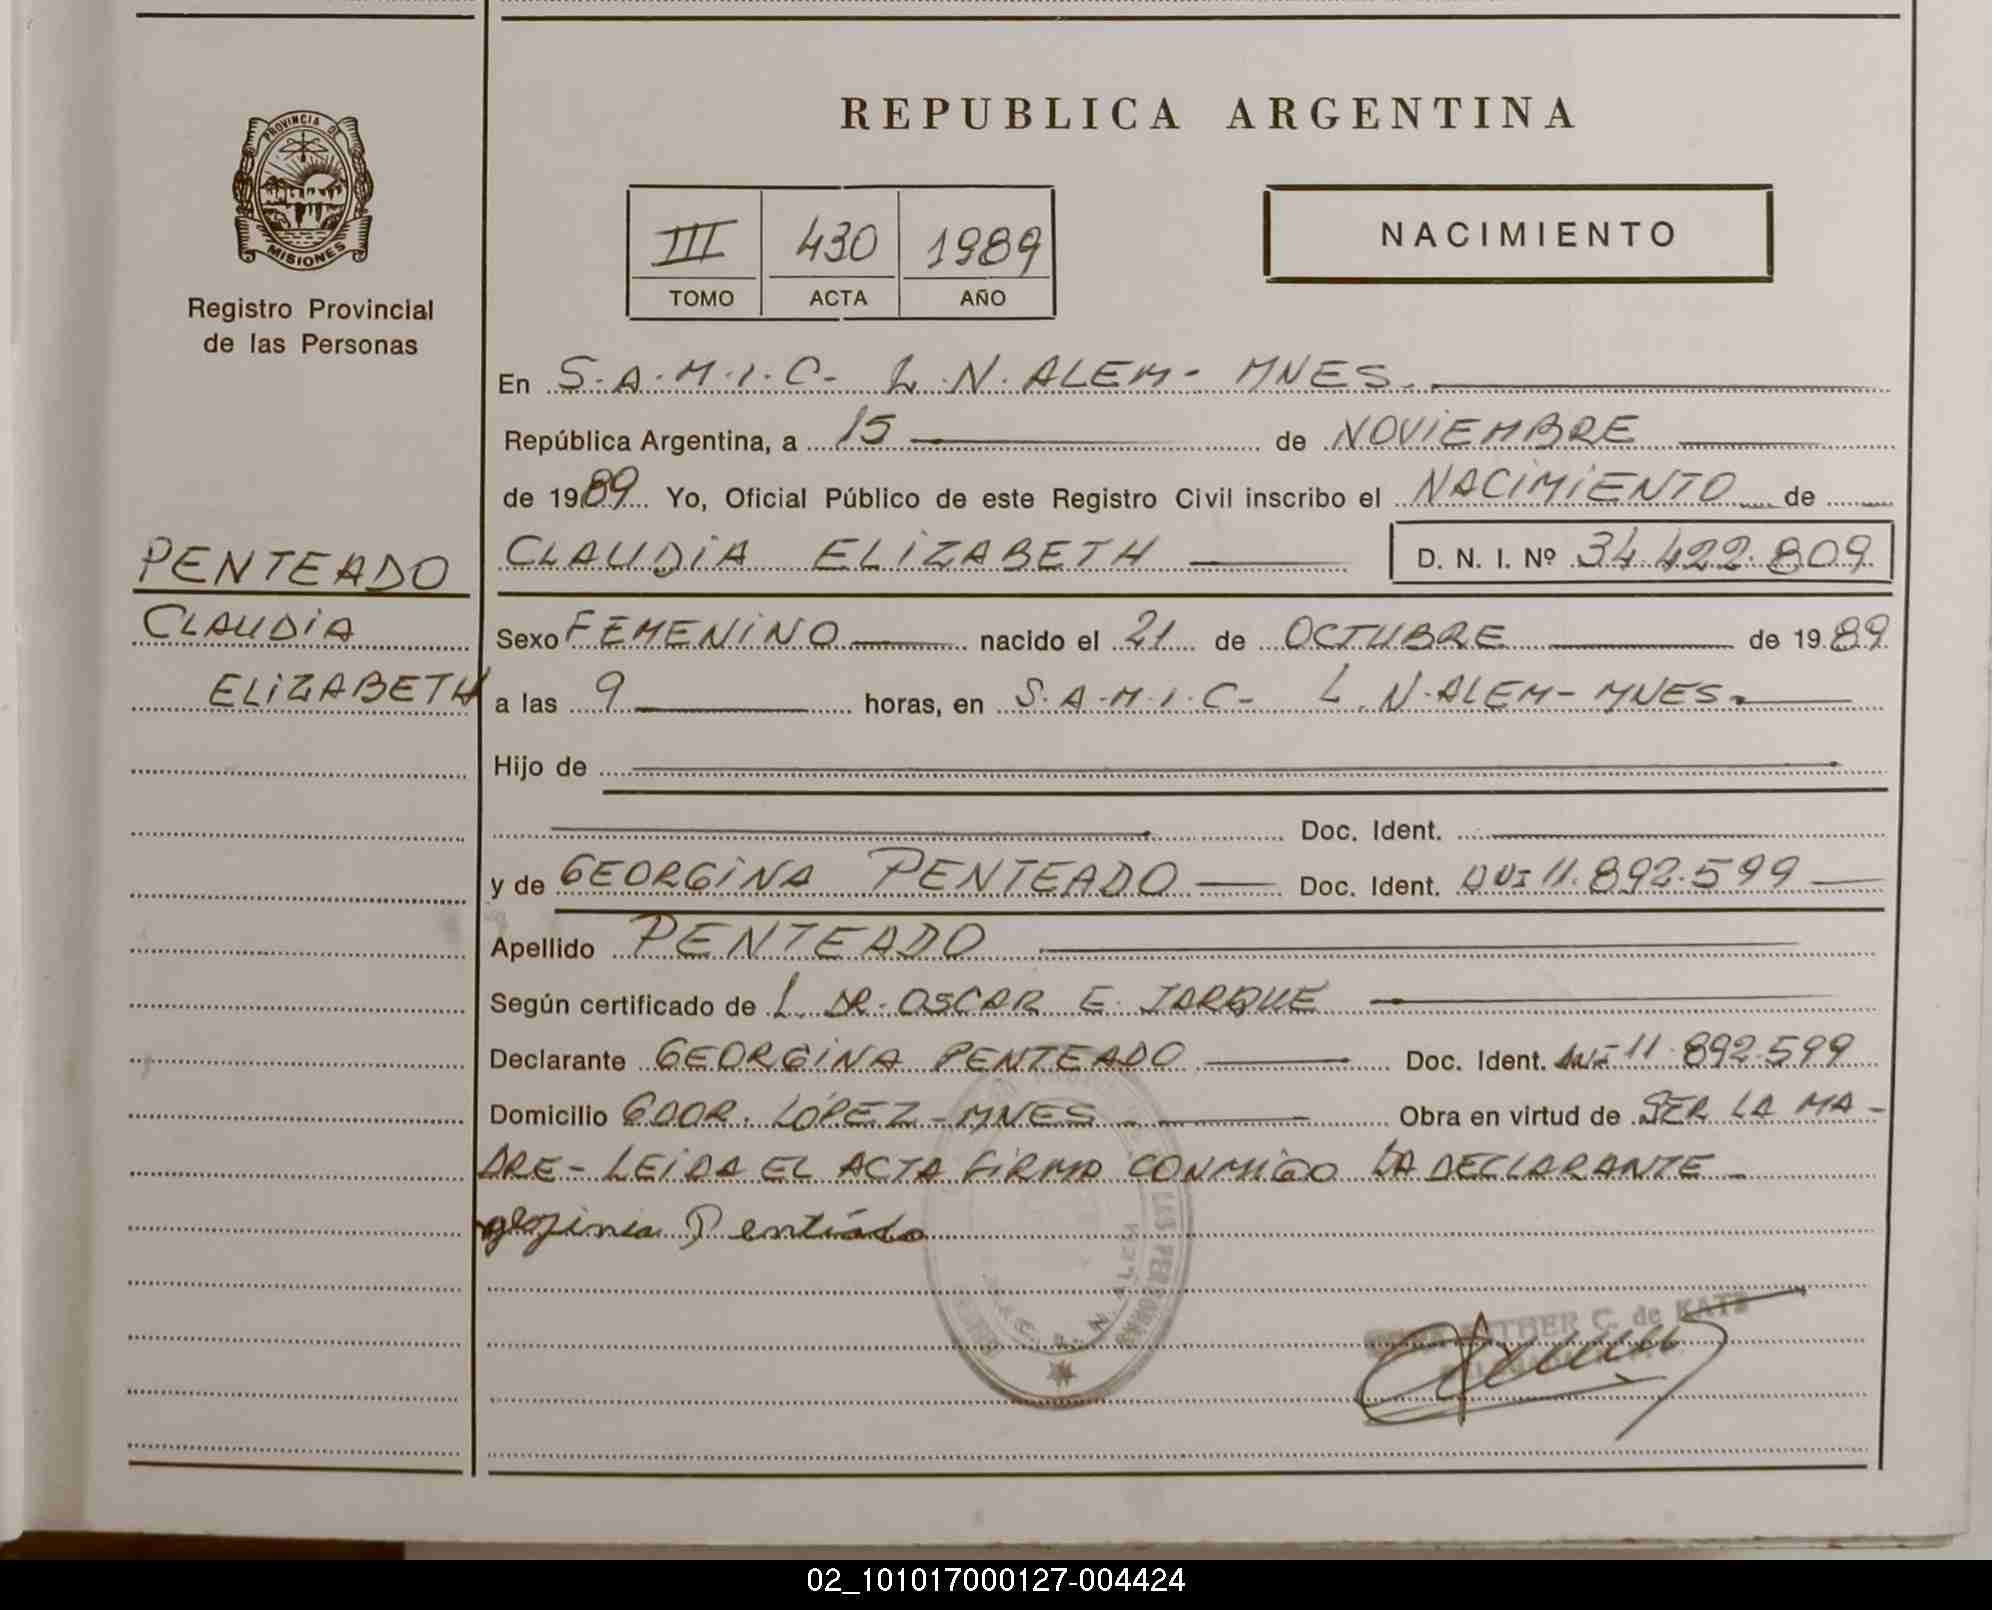 PROVINCIA DE
MISIONES
Registro Provincial
de las Personas
REPUBLICA ARGENTINA
III 430 1989
TOMO ACTA AÑO
NACIMIENTO
En S.A.M.I.C- L.N.ALEM- MNES.
República Argentina, a 15 de NOVIEMBRE
de 1989 Yo, Oficial Público de este Registro Civil inscribo el NACIMIENTO de
PENTEADO
CLAUDIA
ELIZABETH
CLAUDIA ELIZABETH D. N. I. Nº 34.422.809
Sexo FEMENINO nacido el 21 de OCTUBRE de 1989
a las 9 horas, en S.A.M.I.C- L.N.ALEM- MNES.
Hijo de
Doc. Ident.
y de GEORGINA PENTEADO Doc. Ident. DNI 11.892.599
Apellido PENTEADO
Según certificado de L. DR. OSCAR E. JARQUE
Declarante GEORGINA PENTEADO Doc. Ident. DNI 11.892.599
Domicilio GDOR. LÓPEZ-MNES Obra en virtud de SER LA MA-
DRE- LEIDA EL ACTA FIRMA CONMIGO LA DECLARANTE-
Pentiádo
LAS PERSONAS
L. N. ALEM
ESTHER C. de KATZ
02_101017000127-004424